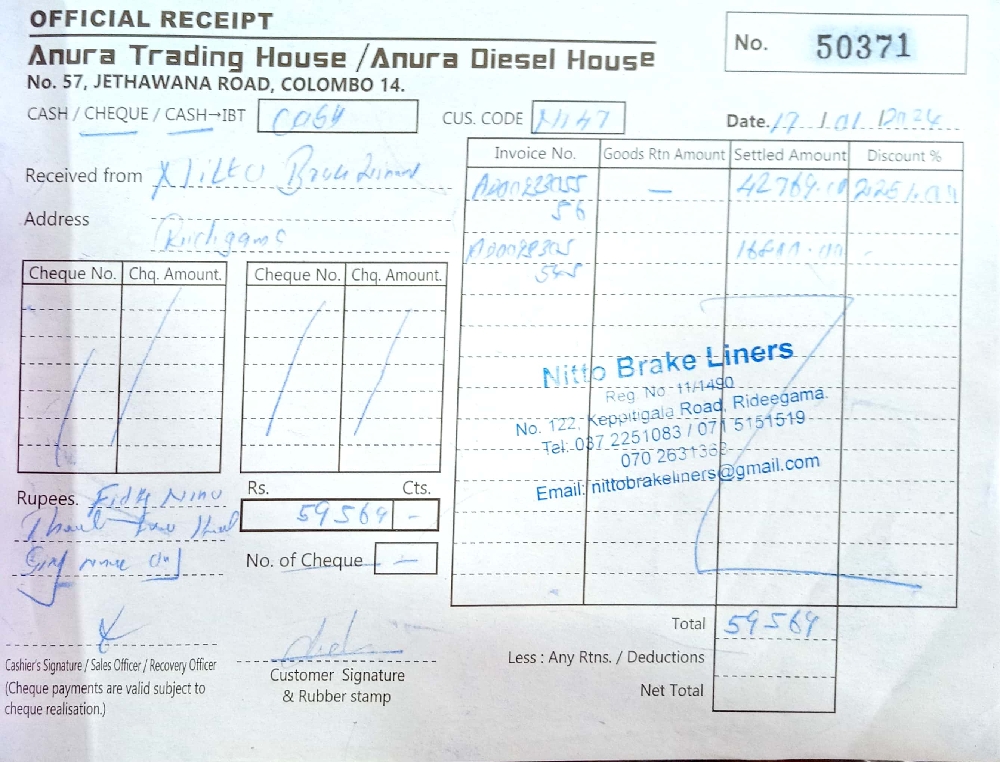 OFFICIAL RECEIPT
Anura Trading House /Anura Diesel House
No. 57, JETHAWANA ROAD, COLOMBO 14.
No. 50371
CASH / CHEQUE / CASH→IBT Cash
CUS. CODE
Date. 17 / 01 / 2024
Received from Nitto Brake Liners
Address
Ridigama
Cheque No. Chq. Amount. Cheque No. Chq. Amount.
Invoice No. Goods Rtn Amount Settled Amount Discount %
— 42769.00
56
Nitto Brake Liners
Reg. No. 11/1490
No. 122, Keppitigala Road, Rideegama.
Tel: 037 2251083 / 071 5151519
070 2631363
Email: nittobrakeliners@gmail.com
Rupees. Fifty Nine
Thousand Five Hund
Sixty nine only
Rs. Cts.
59569 -
No. of Cheque —
Total 59569
Less : Any Rtns. / Deductions
Net Total
Cashier's Signature / Sales Officer / Recovery Officer
(Cheque payments are valid subject to
cheque realisation.)
Customer Signature
& Rubber stamp